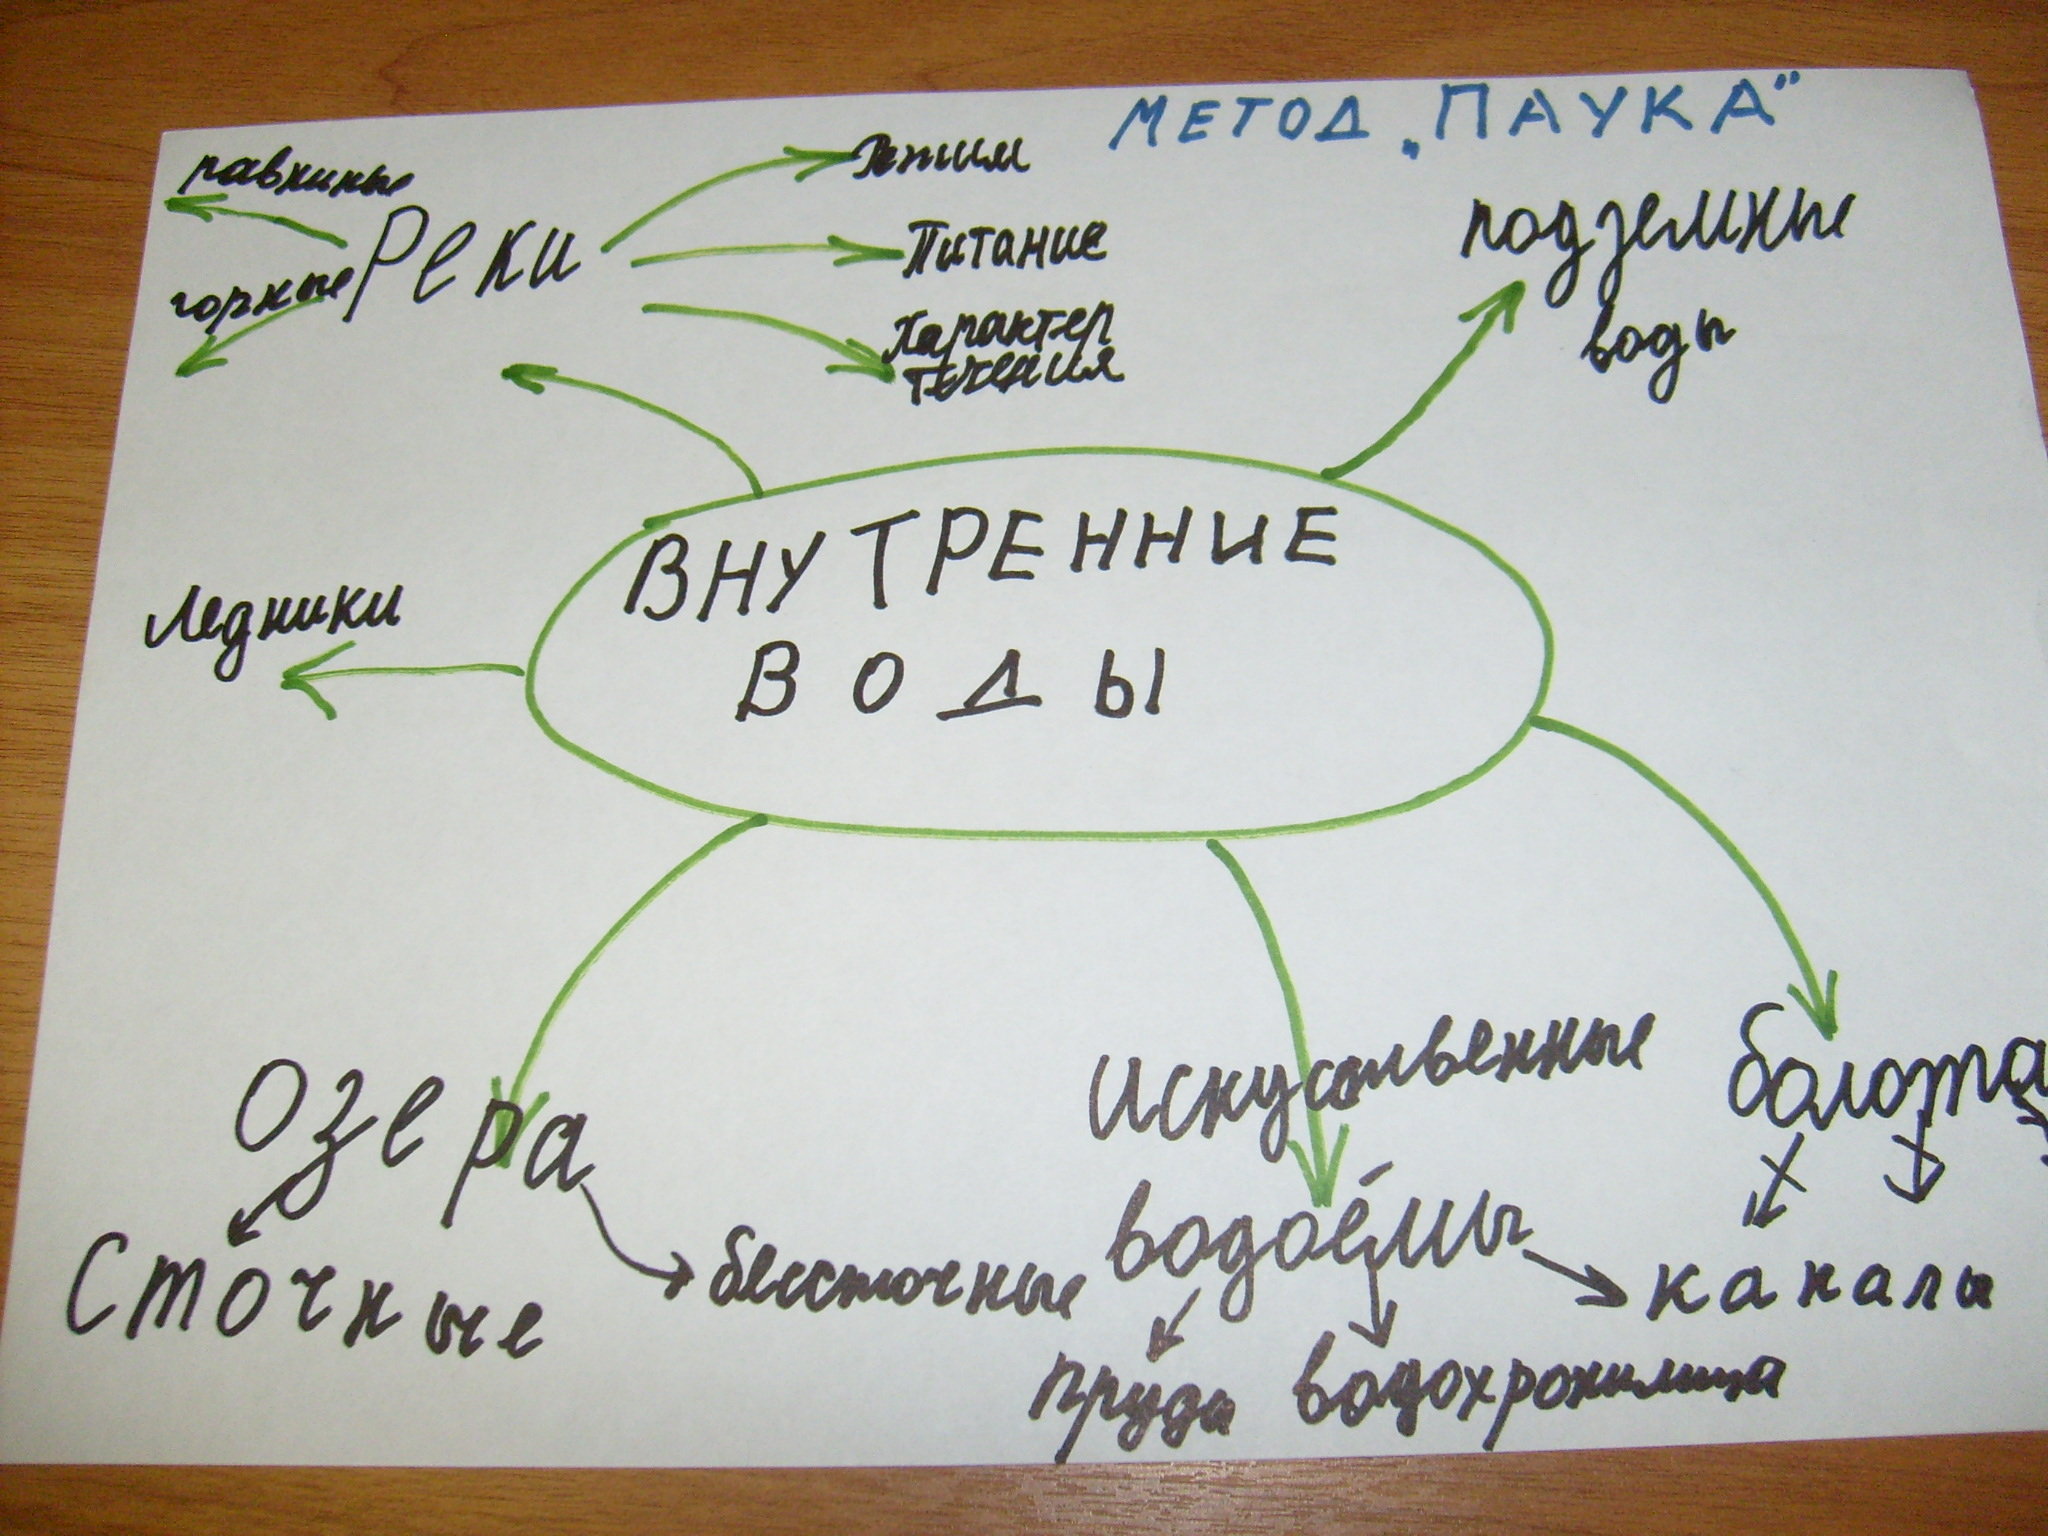 МЕТОД „ПАУКА“
равнины
Реки
горные
Режим
Питание
Характер
течения
подземные
воды
ВНУТРЕННИЕ
ВОДЫ
Ледники
Озера
Сточные
бессточные
Искуственные
водоёмы
пруды
водохронилища
каналы
болота